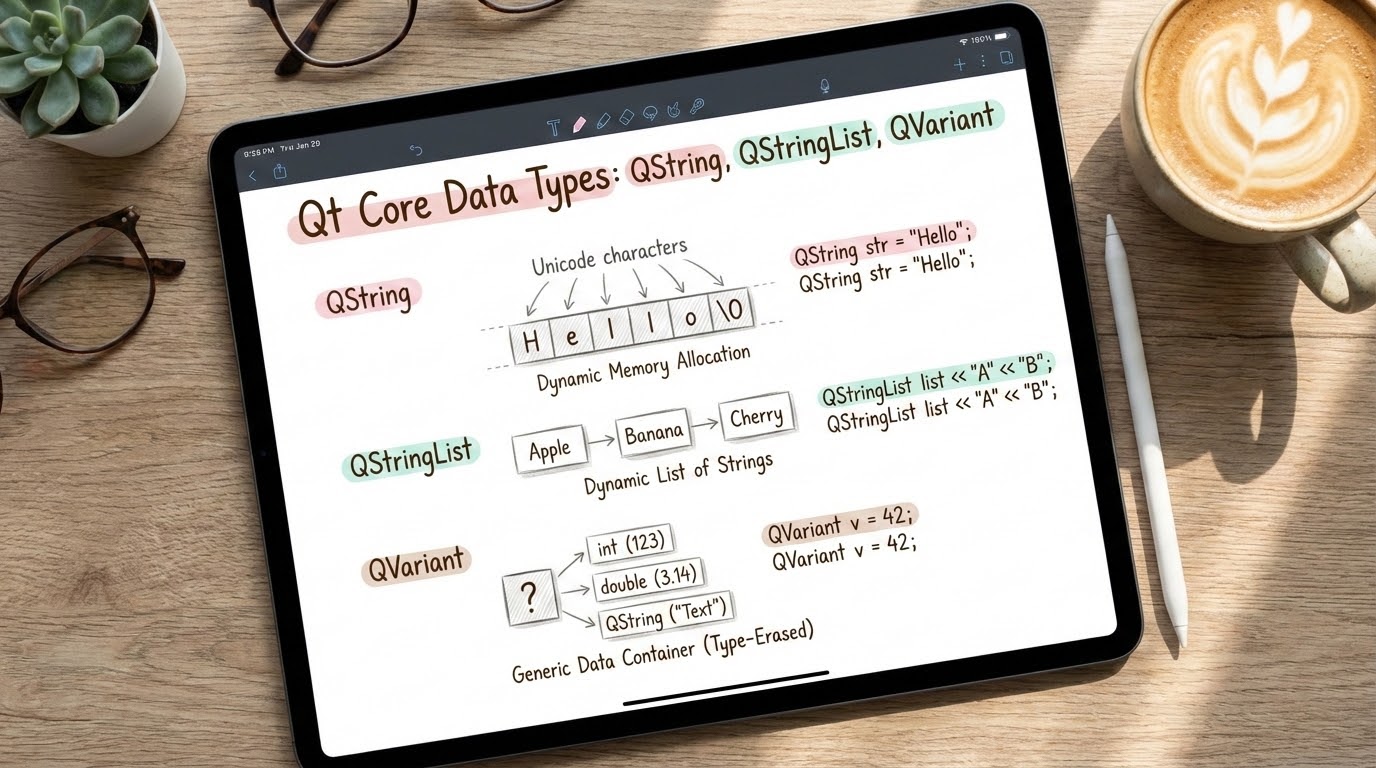 9:58 PM Thu Jan 29
180%
Qt Core Data Types: QString, QStringList, QVariant
QString
Unicode characters
H e l l o \0
Dynamic Memory Allocation
QString str = "Hello";
QString str = "Hello";
QStringList
Apple Banana Cherry
Dynamic List of Strings
QStringList list << "A" << "B";
QStringList list << "A" << "B";
QVariant
?
int (123)
double (3.14)
QString ("Text")
Generic Data Container (Type-Erased)
QVariant v = 42;
QVariant v = 42;